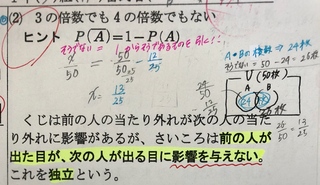 (2) 3の倍数でも4の倍数でもない
ヒント P(A̅)=1−P(A)
そうでない = 1からそうであるものを引く!
x/50 = 50/50 − 12/25
x = 13/25
A+Bの枚数 ⇒ 24枚
そうでない=50−24=26枚
U(50枚)
A B
26/50 = 13/25
くじは前の人の当たり外れが次の人の当た
り外れに影響があるが、さいころは前の人が
出た目が、次の人が出る目に影響を与えない。
これを独立という。